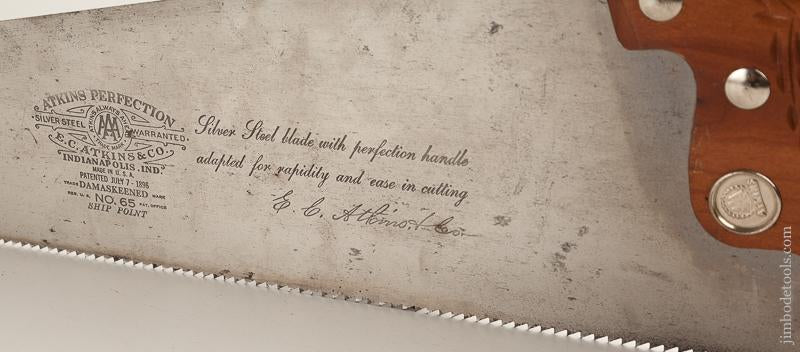 ATKINS PERFECTION
SILVER STEEL
ATKINS ALWAYS AHEAD
AAA
TRADE MARK
WARRANTED.
E.C. ATKINS & CO.,
INDIANAPOLIS, IND.
MADE IN U.S.A.
PATENTED JULY 7-1896
TRADE DAMASKEENED MARK
REG. U.S. NO. 65 PAT. OFFICE
SHIP POINT
Silver Steel blade with perfection handle
adapted for rapidity and ease in cutting
E. C. Atkins & Co.
jimbodetools.com